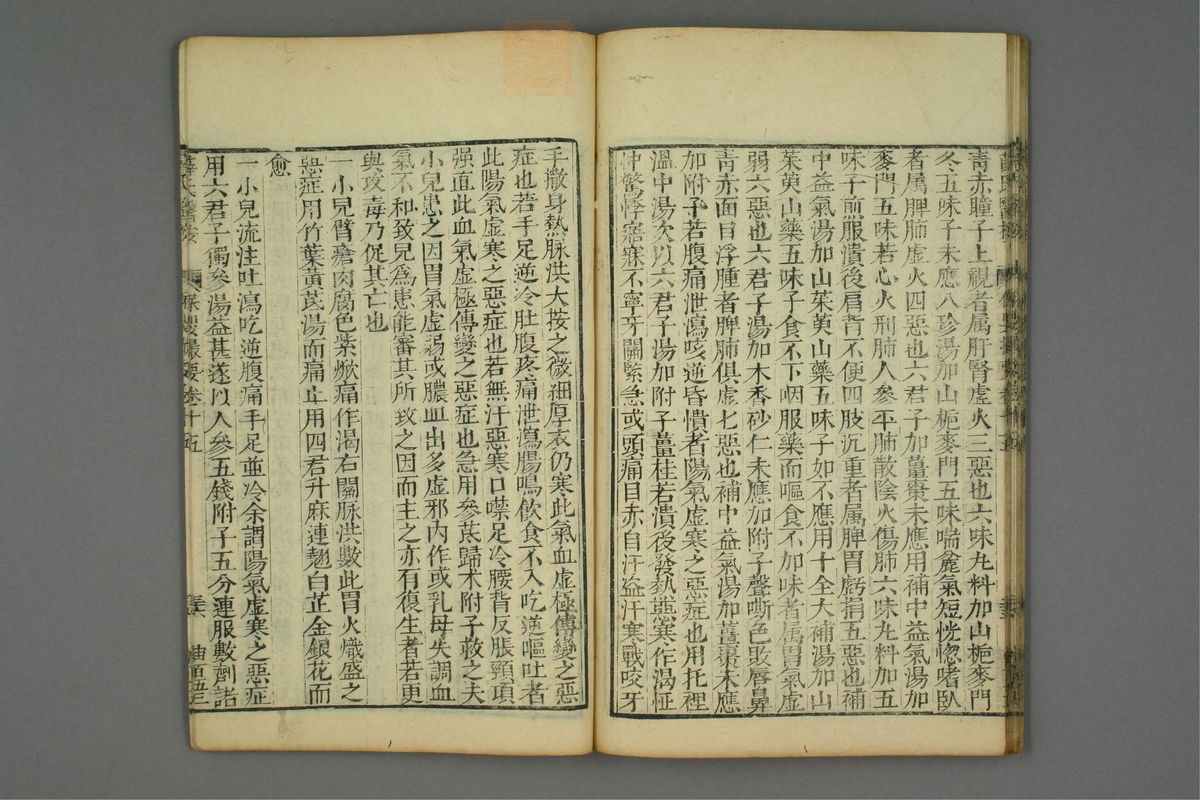 青赤瞳子上視者属肝腎虛火三惡也六味丸料加山梔麥門
冬五味子未應八珍湯加山梔麥門五味喘麄氣短恍惚嗜臥
者属脾肺虛火四惡也六君子加薑棗未應用補中益氣湯加
麥門五味若心火刑肺人參平肺散陰火傷肺六味丸料加五
味子煎服潰後肩背不便四肢沉重者属脾胃虧損五惡也補
中益氣湯加山茱萸山藥五味子如不應用十全大補湯加山
茱萸山藥五味子食不下咽服藥而嘔食不加味者属胃氣虛
弱六惡也六君子湯加木香砂仁未應加附子聲嘶色敗唇鼻
青赤面目浮腫者脾肺俱虛七惡也補中益氣湯加薑棗未應
加附子若腹痛泄瀉咳逆昏憒者陽氣虛寒之惡症也用托裡
溫中湯次以六君子湯加附子薑桂若潰後發熱惡寒作渴怔
忡驚悸寤寐不寧牙關緊急或頭痛目赤自汗盗汗寒戰咬牙
手撒身熱脉洪大按之微細厚衣仍寒此氣血虛極傳變之惡
症也若手足逆冷肚腹疼痛泄瀉腸鳴飲食不入吃逆嘔吐者
此陽氣虛寒之惡症也若無汗惡寒口噤足冷腰背反脹頸項
强直此血氣虛極傳變之惡症也急用參茋歸术附子救之夫
小兒患之因胃氣虛弱或膿血出多虛邪内作或乳母失調血
氣不和致兒爲患能審其所致之因而主之亦有復生者若更
與攻毒乃促其亡也
一小兒臂瘡肉腐色紫焮痛作渴右關脉洪數此胃火熾盛之
惡症用竹葉黃茋湯而痛止用四君升麻連翹白芷金銀花而
愈
一小兒流注吐瀉吃逆腹痛手足並冷余謂陽氣虛寒之惡症
用六君子獨參湯益甚遂以人參五錢附子五分連服數劑諸
保嬰撮要卷十五